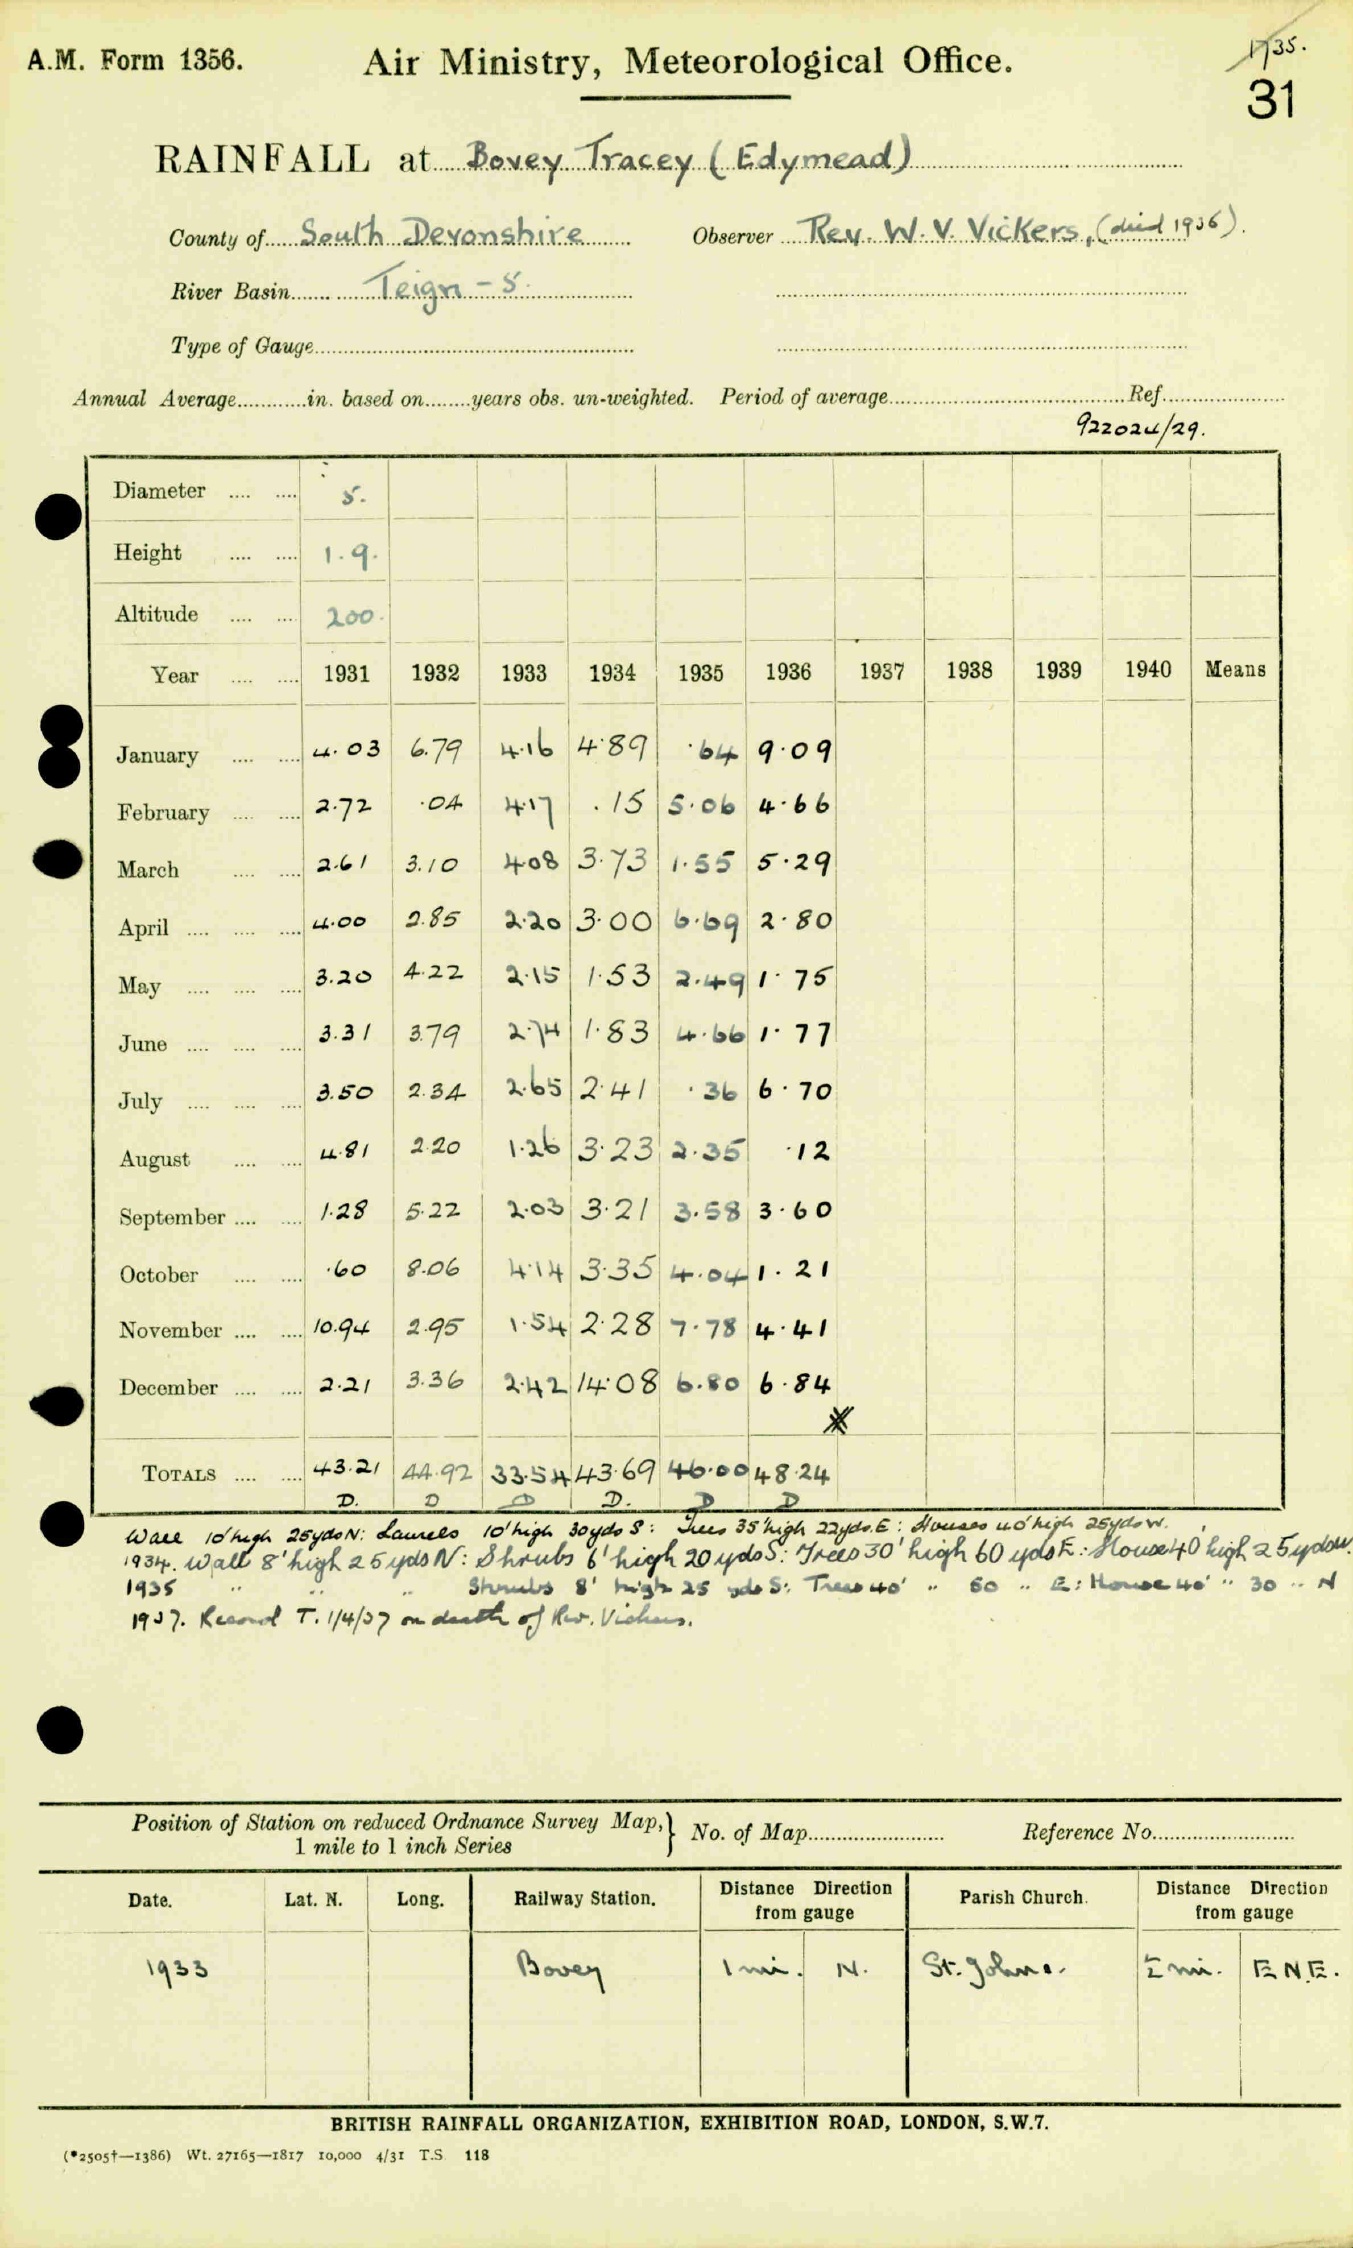 A.M. Form 1356.
Air Ministry, Meteorological Office.
1935.
31
RAINFALL at Bovey Tracey (Edymead)
County of South Devonshire Observer Rev. W. V. Vickers, (died 1936).
River Basin Teign - 5.
Type of Gauge
Annual Average in. based on years obs. un-weighted. Period of average Ref.
922024/29.
Diameter 5.
Height 1.9.
Altitude 200.
Year 1931 1932 1933 1934 1935 1936 1937 1938 1939 1940 Means
January 4.03 6.79 4.16 4.89 .64 9.09
February 2.72 .04 4.17 .15 5.06 4.66
March 2.61 3.10 4.08 3.73 1.55 5.29
April 4.00 2.85 2.20 3.00 6.69 2.80
May 3.20 4.22 2.15 1.53 2.49 1.75
June 3.31 3.79 2.74 1.83 4.66 1.77
July 3.50 2.34 2.65 2.41 .36 6.70
August 4.81 2.20 1.26 3.23 2.35 .12
September 1.28 5.22 2.03 3.21 3.58 3.60
October .60 8.06 4.14 3.35 4.04 1.21
November 10.94 2.95 1.54 2.28 7.78 4.41
December 2.21 3.36 2.42 14.08 6.80 6.84
TOTALS 43.21 44.92 33.54 43.69 46.00 48.24
D. D D D. D D
Wall 10' high 25 yds N: Laurels 10' high 30 yds S: Trees 35' high 22 yds. E: Houses 40' high 25 yds W.
1934. Wall 8' high 25 yds N: Shrubs 6' high 20 yds S: Trees 30' high 60 yds E: House 40' high 25 yds W.
1935 " " " Shrubs 8' high 25 yds S: Trees 40' " 50 " E: House 40' " 30 " N
1937. Record T. 1/4/37 on death of Rev. Vickers.
Position of Station on reduced Ordnance Survey Map, No. of Map Reference No.
1 mile to 1 inch Series
Date. Lat. N. Long. Railway Station. Distance Direction from gauge Parish Church. Distance Direction from gauge
1933 Bovey 1 mi. N. St. Johns. mi. E.N.E.
BRITISH RAINFALL ORGANIZATION, EXHIBITION ROAD, LONDON, S.W.7.
(*2505†—1386) Wt. 27165—1817 10,000 4/31 T.S 118